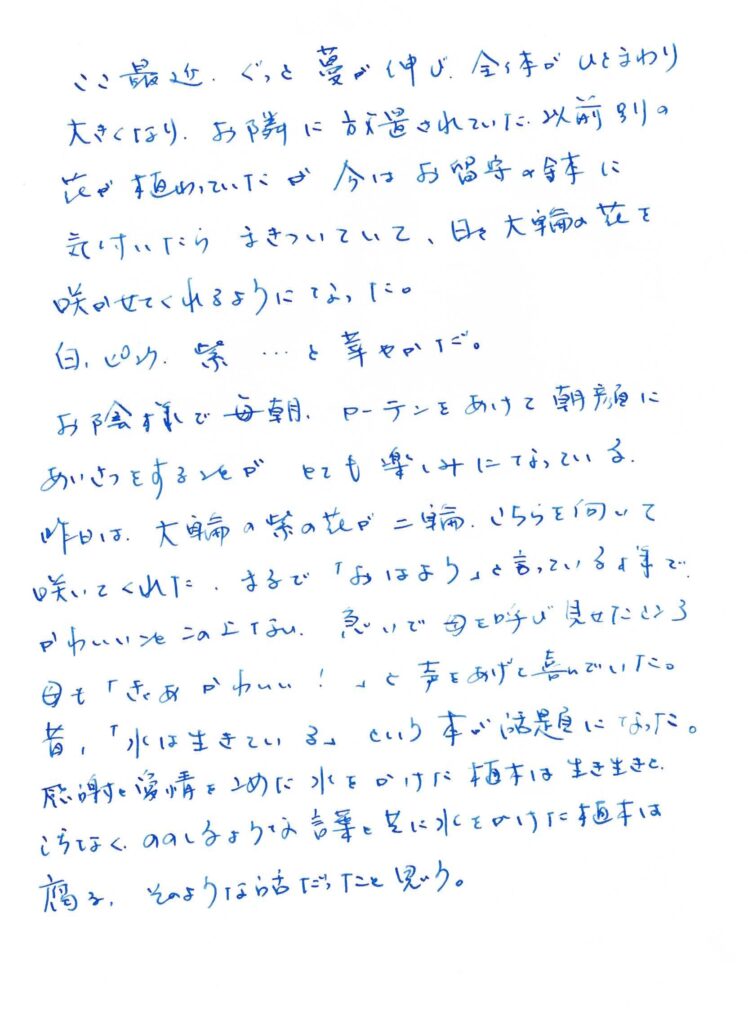 ここ最近、ぐっと蔓が伸び、全体がひとまわり
大きくなり、お隣に放置されていた、以前別の
花が植わっていたが今はお留守の鉢に
気付いたらまきついていて、日々大輪の花を
咲かせてくれるようになった。
白、ピンク、紫…と華やかだ。
お陰様で毎朝、カーテンをあけて朝顔に
あいさつをするのが とても楽しみになっている。
昨日は、大輪の紫の花が二輪、こちらを向いて
咲いてくれた、まるで「おはよう」と言っている様で
かわいいことこの上ない、急いで母を呼び見せたところ
母も「きゃあかわいい!」と声をあげて喜んでいた。
昔、「水は生きている」という本が話題になった。
感謝と愛情をこめた水をかけた植木は生き生きと、
そうでなく、ののしるような言葉と共に水をかけた植木は
腐る、そのような話だったと思う。